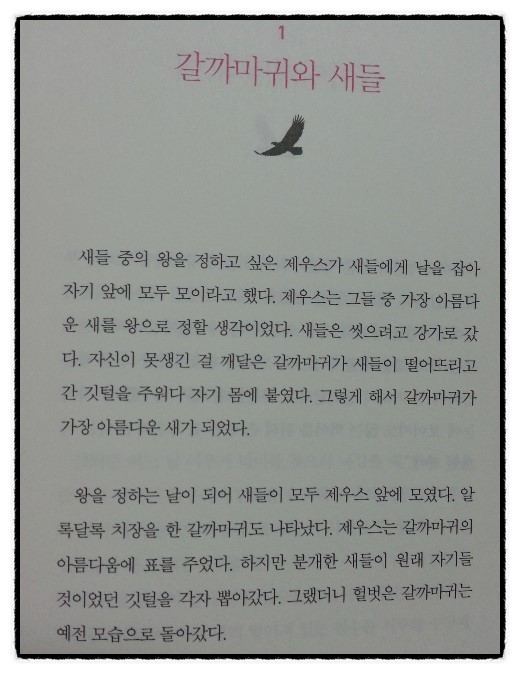 1
갈까마귀와 새들
새들 중의 왕을 정하고 싶은 제우스가 새들에게 날을 잡아
자기 앞에 모두 모이라고 했다. 제우스는 그들 중 가장 아름다
운 새를 왕으로 정할 생각이었다. 새들은 씻으려고 강가로 갔
다. 자신이 못생긴 걸 깨달은 갈까마귀가 새들이 떨어뜨리고
간 깃털을 주워다 자기 몸에 붙였다. 그렇게 해서 갈까마귀가
가장 아름다운 새가 되었다.
왕을 정하는 날이 되어 새들이 모두 제우스 앞에 모였다. 알
록달록 치장을 한 갈까마귀도 나타났다. 제우스는 갈까마귀의
아름다움에 표를 주었다. 하지만 분개한 새들이 원래 자기들
것이었던 깃털을 각자 뽑아갔다. 그랬더니 헐벗은 갈까마귀는
예전 모습으로 돌아갔다.